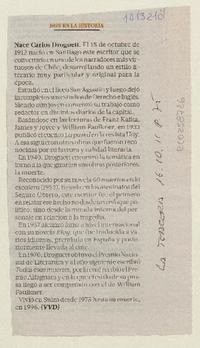 HOY EN LA HISTORIA
1013210
Nace Carlos Droguett. El 15 de octubre de
1912 nació en Santiago este escritor que se
convertiría en uno de los narradores más vir-
tuosos de Chile, desarrollando un estilo li-
terario muy particular y original para la
época.
Estudió en el liceo San Agustín y luego dejó
incompletos estudios de Derecho e Inglés.
Siendo aún joven comenzó su trabajo como
redactor en distintos diarios de la capital.
Basándose en las lecturas de Franz Kafka,
James Joyce y William Faulkner, en 1933
publicó el cuento en la revista Hoy.
A esa siguieron otras obras que fueron reco-
nocidas por su fuerza y calidad literaria.
En 1940, Droguett encontró la temática en
torno a la que girarían sus obras posteriores,
la muerte.
Reconocido por su novela 60 muertos en la
escalera (1953), basada en los asesinatos del
Seguro Obrero, este escritor no se preocupó
político, sino desde la mirada interna del per-
sonaje en relación a la tragedia.
En 1957 alcanzó fama a nivel internacional
con su novela Eloy, que fue traducida a
varios idiomas, premiada en España y poste-
riormente llevada al cine.
En 1970, Droguett obtuvo el Premio Nacio-
nal de Literatura y al año siguiente escribió
Todas esas muertes, por la cual recibió el Pre-
mio Alfaguara y en la que la calidad de su pro-
sa llegó a ser comparada con el de William
Faulkner.
Vivió en Suiza desde 1975 hasta su muerte,
en 1996. (VVD)
LA TERCERA